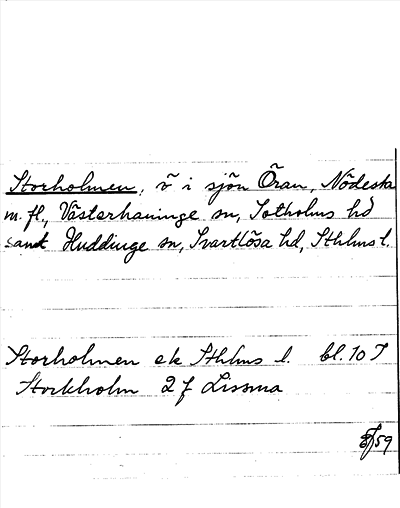 Storholmen, ö i sjön Öran, Nödesta
m. fl., Västerhaninge sn, Sotholms hd
samt Huddinge sn, Svartlösa hd, Sthlms l.
Storholmen ek Sthlms l. bl. 10 J
Stockholm 2 f Lissma
59